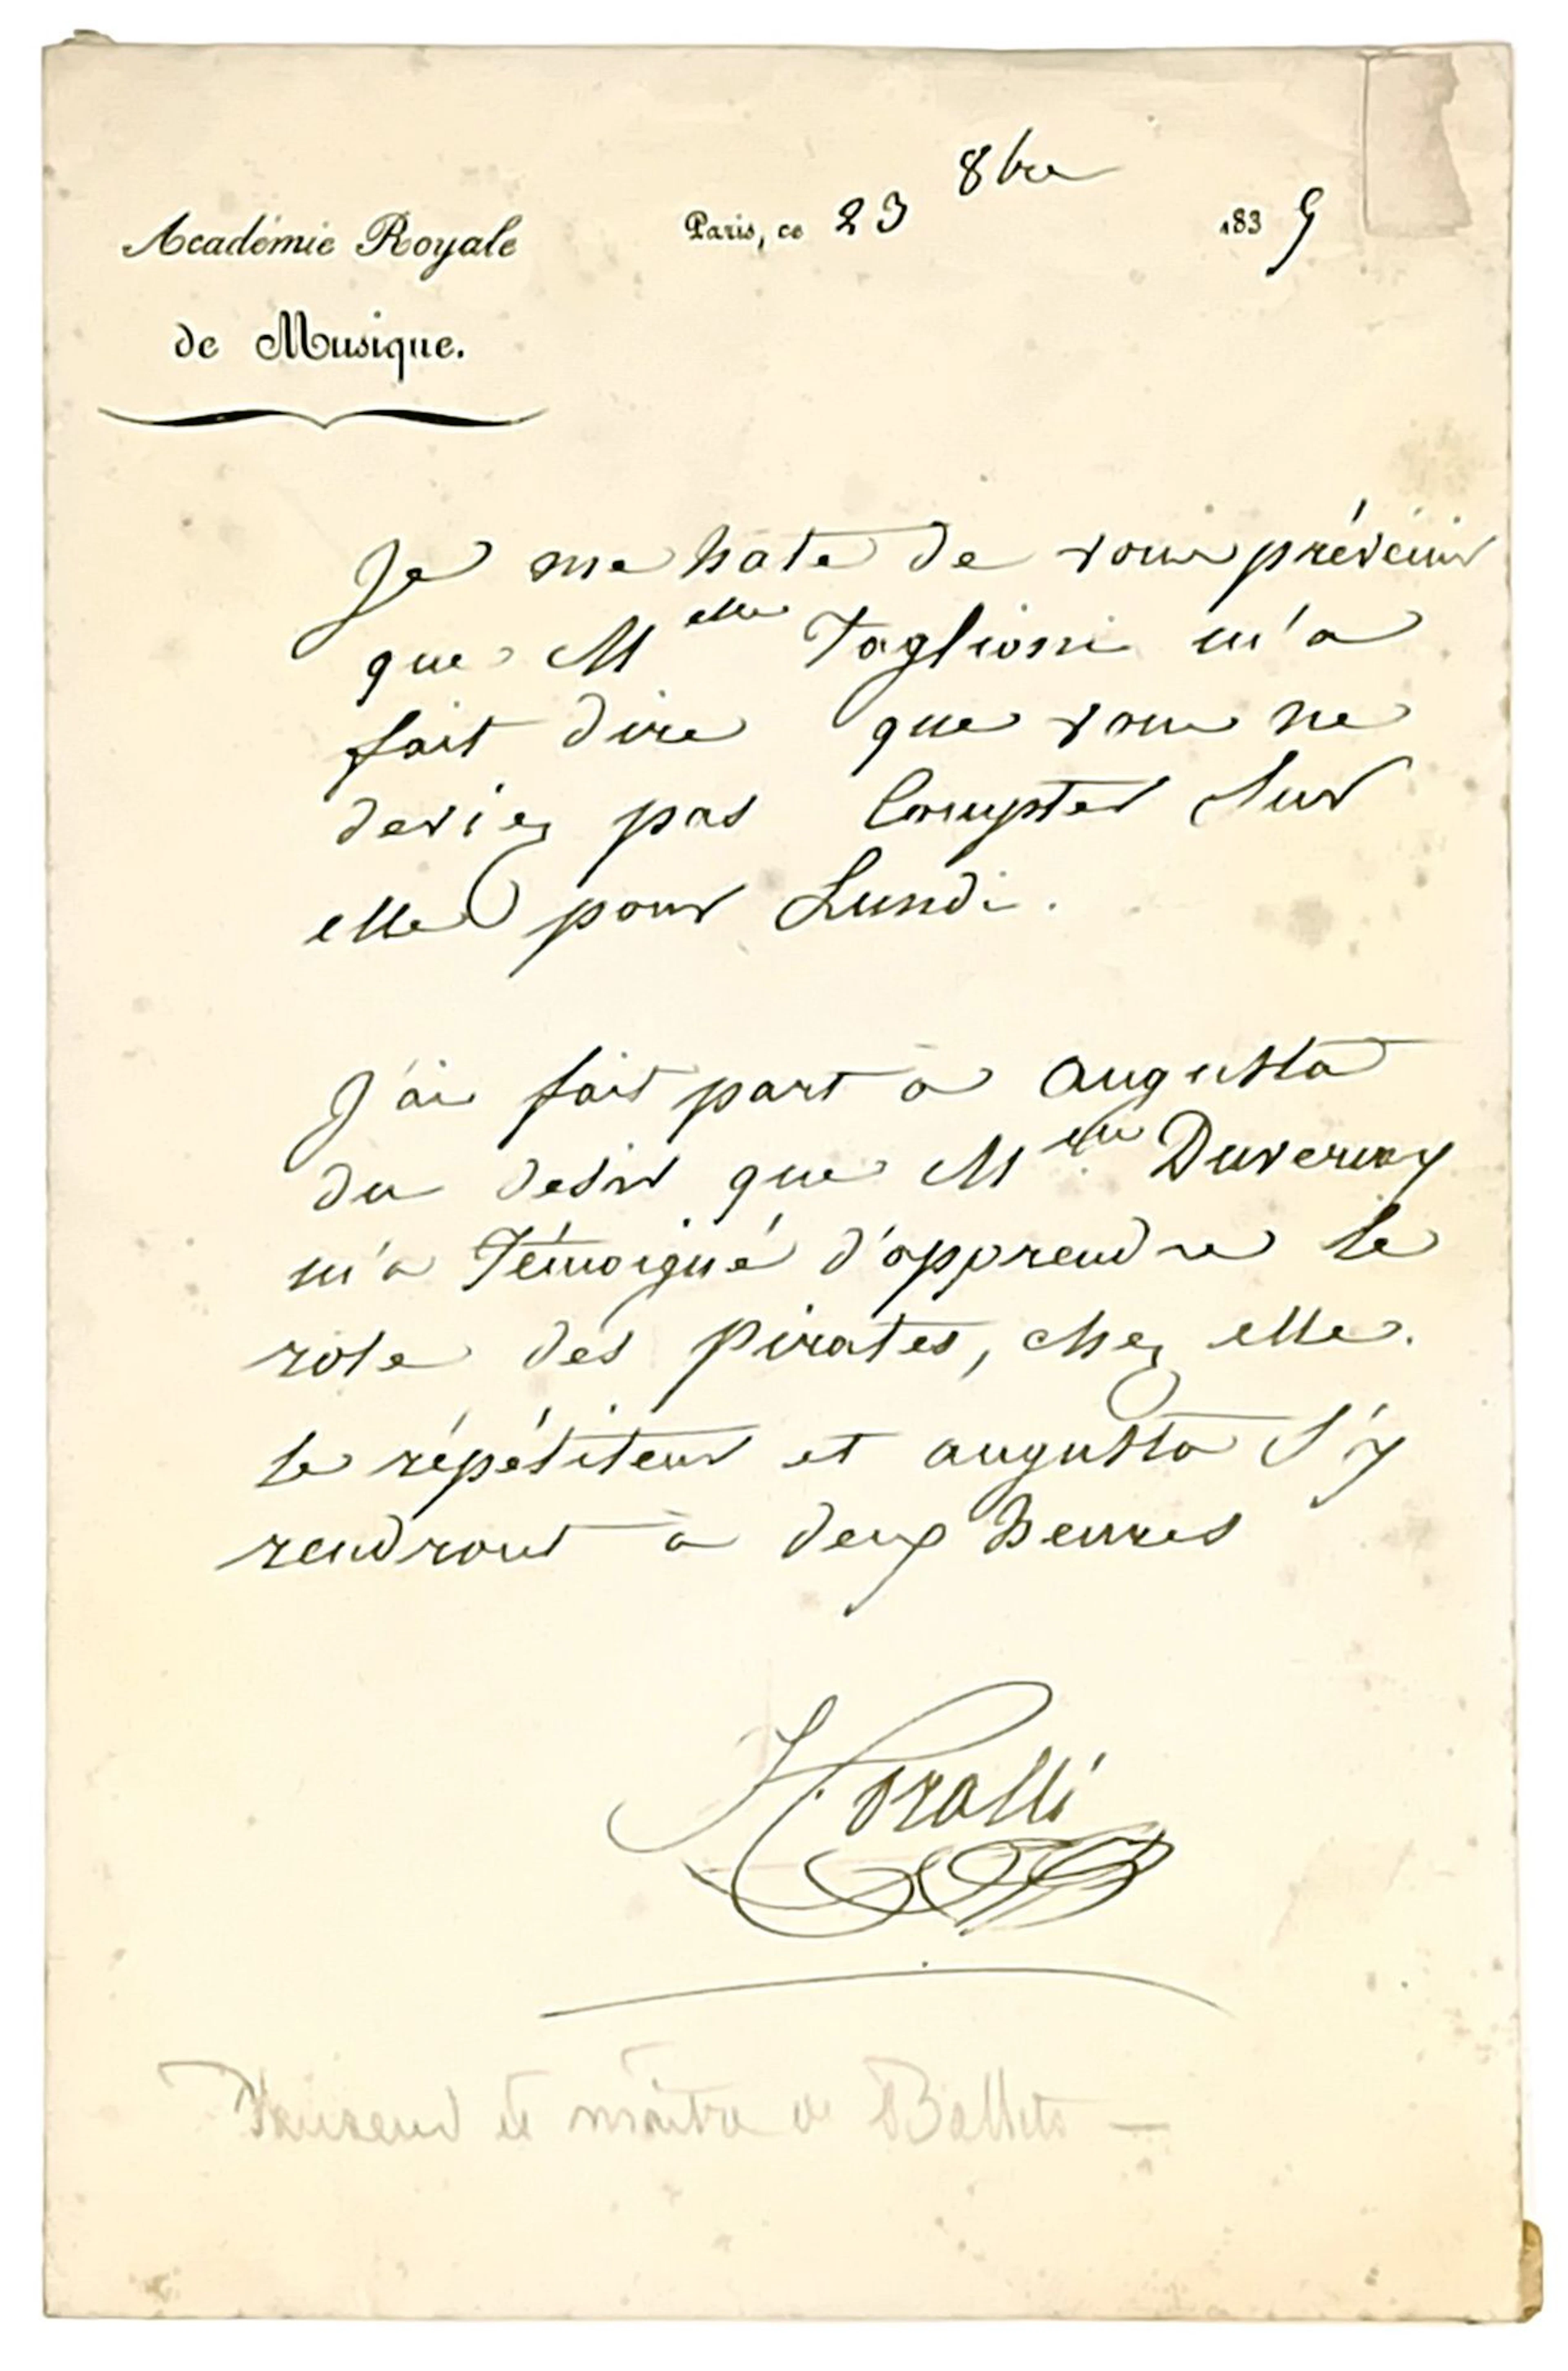 Académie Royale
de Musique.
Paris, ce 23 8bre 1835
Je me hate de vous prévenir
que Melle Taglioni m'a
fait dire que vous ne
deviez pas Compter Sur
elle pour Lundi.
J'ai fait part à augusta
du desir que Melle Duvernay
m'a Témoigné d'apprendre le
role des Pirates, chez elle.
le répétiteur et augusta S'y
rendront à deux heures
Coralli
Danseur et maître de Ballets —